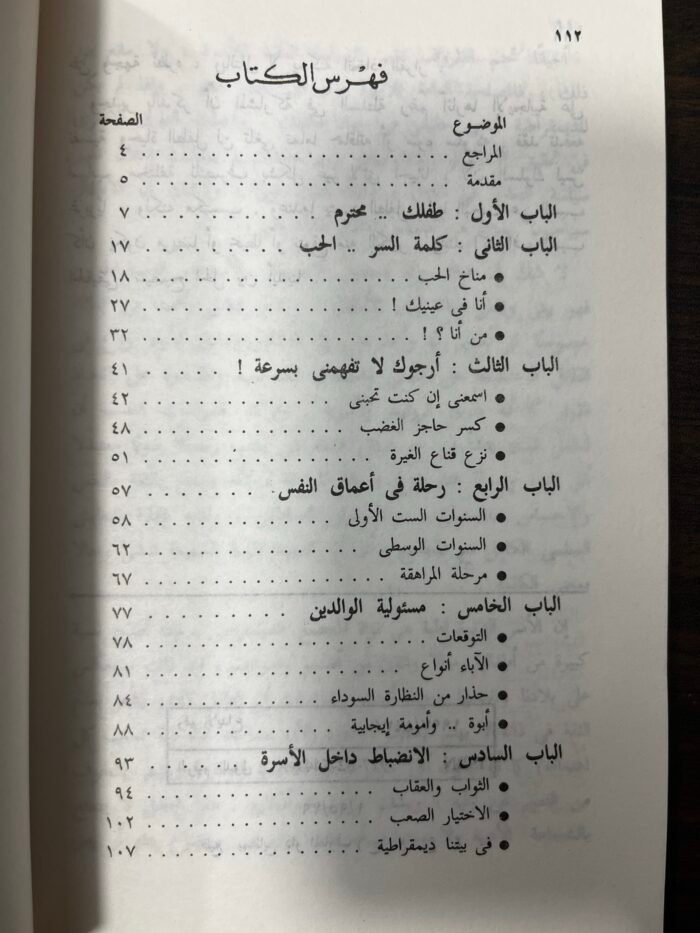 ١١٢
فهرس الكتاب
الموضوع الصفحة
المراجع . . . . . . . . . . . . . . . . . . . . ٤
مقدمة . . . . . . . . . . . . . . . . . . . . ٥
الباب الأول : طفلك .. محترم . . . . . . . . . . ٧
الباب الثانى : كلمة السر .. الحب . . . . . . . . . . ١٧
● مناخ الحب . . . . . . . . . . . . . . . . ١٨
● أنا فى عينيك ! . . . . . . . . . . . . . . . ٢٧
● من أنا ؟ ! . . . . . . . . . . . . . . . ٣٢
الباب الثالث : أرجوك لا تفهمنى بسرعة ! . . . . . . ٤١
● اسمعنى إن كنت تحبنى . . . . . . . . . . . . ٤٢
● كسر حاجز الغضب . . . . . . . . . . . . . ٤٨
● نزع قناع الغيرة . . . . . . . . . . . . . . ٥١
الباب الرابع : رحلة فى أعماق النفس . . . . . . . . ٥٧
● السنوات الست الأولى . . . . . . . . . . . . ٥٨
● السنوات الوسطى . . . . . . . . . . . . . . ٦٢
● مرحلة المراهقة . . . . . . . . . . . . . . ٦٧
الباب الخامس : مسئولية الوالدين . . . . . . . . . ٧٧
● التوقعات . . . . . . . . . . . . . . . . ٧٨
● الآباء أنواع . . . . . . . . . . . . . . . ٨١
● حذار من النظارة السوداء . . . . . . . . . . . ٨٤
● أبوة .. وأمومة إيجابية . . . . . . . . . . . . ٨٨
الباب السادس : الانضباط داخل الأسرة . . . . . . . ٩٣
● الثواب والعقاب . . . . . . . . . . . . . . ٩٤
● الاختيار الصعب . . . . . . . . . . . . . . ١٠٢
● فى بيتنا ديمقراطية . . . . . . . . . . . . . ١٠٧